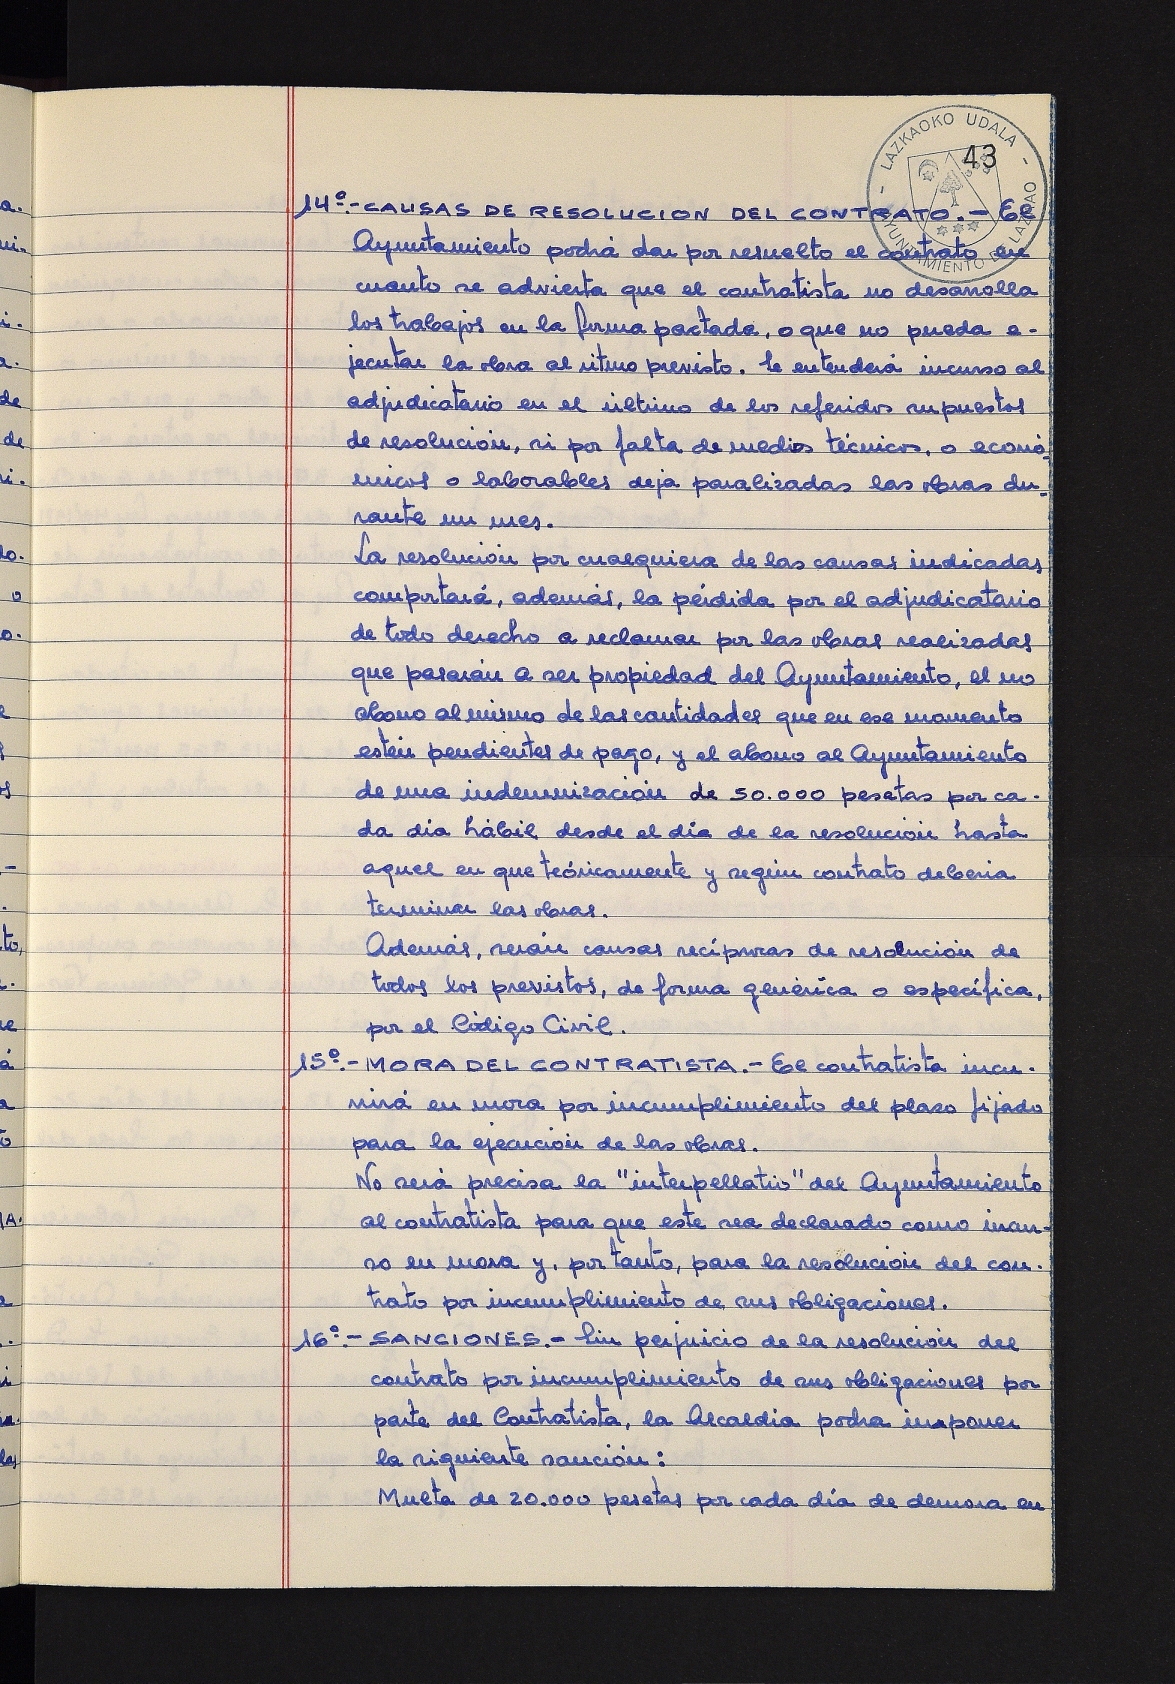 LAZKAOKO UDALA
AYUNTAMIENTO DE LAZKAO
43
14º.- CAUSAS DE RESOLUCION DEL CONTRATO.- El
Ayuntamiento podrá dar por resuelto el contrato en
cuanto se advierta que el contratista no desarrolla
los trabajos en la forma pactada, o que no pueda e-
jecutar la obra al ritmo previsto. Se entenderá incurso al
adjudicatario en el último de los referidos supuestos
de resolución, si por falta de medios técnicos, o econó-
micos o laborables deja paralizadas las obras du-
rante un mes.
La resolución por cualquiera de las causas indicadas
comportará, además, la pérdida por el adjudicatario
de todo derecho a reclamar por las obras realizadas
que pasarán a ser propiedad del Ayuntamiento, el no
abono al mismo de las cantidades que en ese momento
estén pendientes de pago, y el abono al Ayuntamiento
de una indemnización de 50.000 pesetas por ca-
da dia hábil desde el día de la resolución hasta
aquel en que teóricamente y según contrato deberia
terminar las obras.
Además, serán causas recíprocas de resolución de
todos los previstos, de forma genérica o específica,
por el Código Civil.
15º.- MORA DEL CONTRATISTA.- El contratista incu-
rrirá en mora por incumplimiento del plazo fijado
para la ejecución de las obras.
No será precisa la "interpellatio" del Ayuntamiento
al contratista para que este sea declarado como incur-
so en mora y, por tanto, para la resolución del con-
trato por incumplimiento de sus obligaciones.
16º.- SANCIONES.- Sin perjuicio de la resolución del
contrato por incumplimiento de sus obligaciones por
parte del Contratista, la Alcaldia podra imponer
la siguiente sanción:
Multa de 20.000 pesetas por cada día de demora en